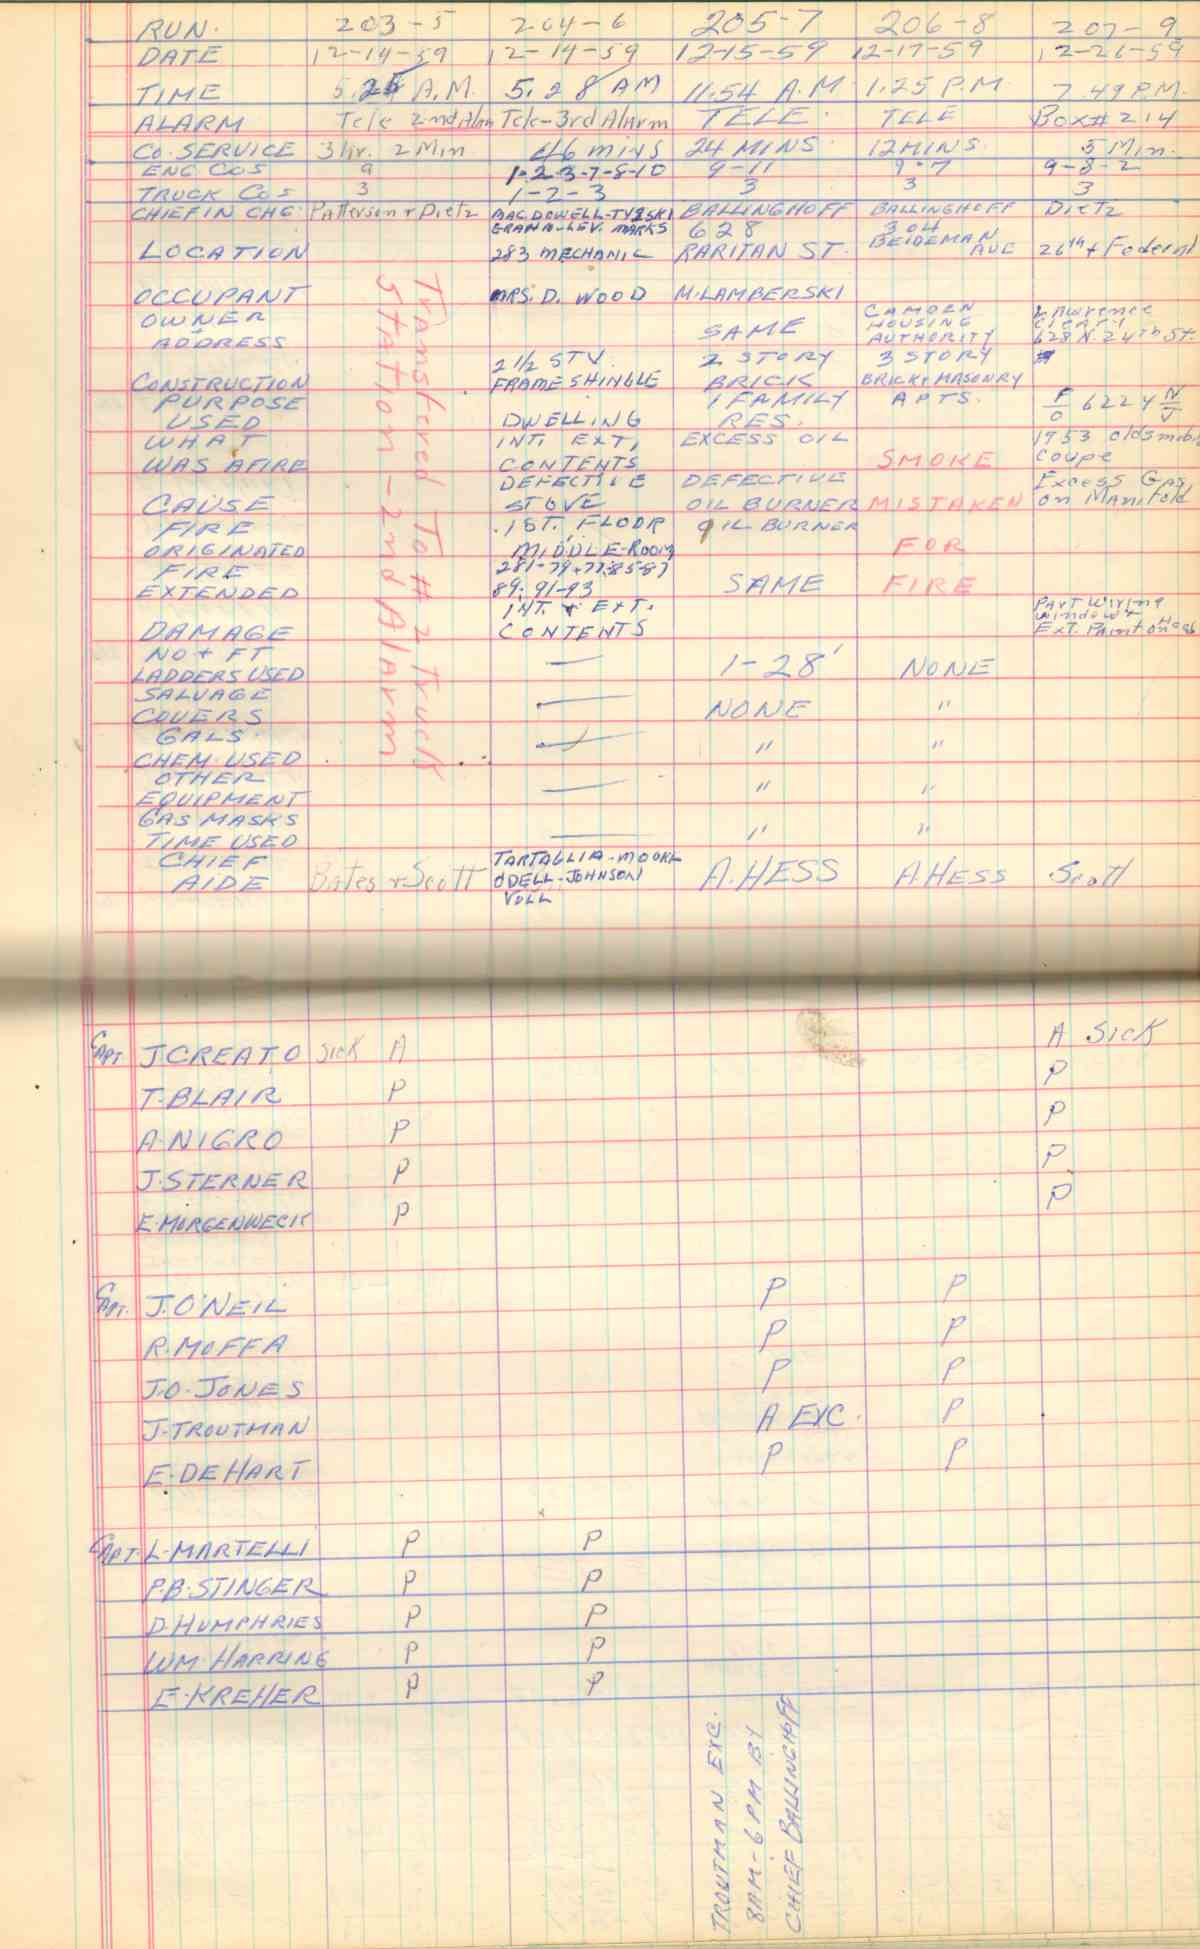 RUN. 203-5 204-6 205-7 206-8 207-9
DATE 12-14-59 12-14-59 12-15-59 12-17-59 12-26-59
TIME 5.25 A.M. 5.28 AM 11.54 A.M 1.25 P.M 7.49 P.M.
ALARM Tele 2nd Alm Tele-3rd Alarm TELE. TELE Box# 214
CO. SERVICE 3 hr. 2 Min 46 mins 24 MINS. 12 MINS. 5 Min.
ENG COS 9 1-2-3-7-8-10 9-11 9-7 9-8-2
TRUCK COS 3 1-2-3 3 3 3
CHIEF IN CHG: Patterson + Dietz MACDOWELL-TYZSKI BALLINGHOFF BALLINGHOFF Dietz
GRANN-LEV. MARKS 628 304
LOCATION 283 MECHANIC RARITAN ST. BEIDEMAN AVE 26th + Federal
Transfered To # 2 Truck
Station - 2nd Alarm
OCCUPANT MRS. D. WOOD M. LAMBERSKI
OWNER
ADDRESS SAME CAMDEN HOUSING AUTHORITY Lawrence Cleary 628 N. 24th St.
CONSTRUCTION 2 1/2 STY. FRAME SHINGLE 2 STORY BRICK 3 STORY BRICK + MASONRY
PURPOSE
USED DWELLING 1 FAMILY RES. APTS. F/O 622 Y N/J
WHAT
WAS AFIRE INT. EXT, CONTENTS EXCESS OIL SMOKE 1953 oldsmobile Coupe
CAUSE DEFECTIVE STOVE DEFECTIVE OIL BURNER MISTAKEN Excess Gas on Manifold
FIRE
ORIGINATED 1ST. FLOOR MIDDLE-ROOM OIL BURNER FOR
FIRE
EXTENDED 281-79+77-85-87 89-91-93 SAME FIRE
DAMAGE INT. + EXT. CONTENTS Part Wiring Window + Ext. Paint on Hood
NO + FT
LADDERS USED — 1-28' NONE
SALVAGE
COVERS — NONE "
GALS.
CHEM. USED — " "
OTHER
EQUIPMENT — " "
GAS MASKS
TIME USED — " "
CHIEF
AIDE Bates + Scott TARTAGLIA-MOORE ODELL-JOHNSON VOLL A. HESS A. HESS Scott
CAPT J. CREATO SICK A A SICK
T. BLAIR P P
A. NIGRO P P
J. STERNER P P
E. MORGENWECK P P
CAPT. J. O'NEIL P P
R. MOFFA P P
J. O. JONES P P
J. TROUTMAN A EXC. P
E. DEHART P P
CAPT. L. MARTELLI P P
P. B. STINGER P P
D. HUMPHRIES P P
WM. HARRING P P
E. KREHER P P
TROUTMAN EXC.
8AM-6PM BY
CHIEF BALLINGHOFF